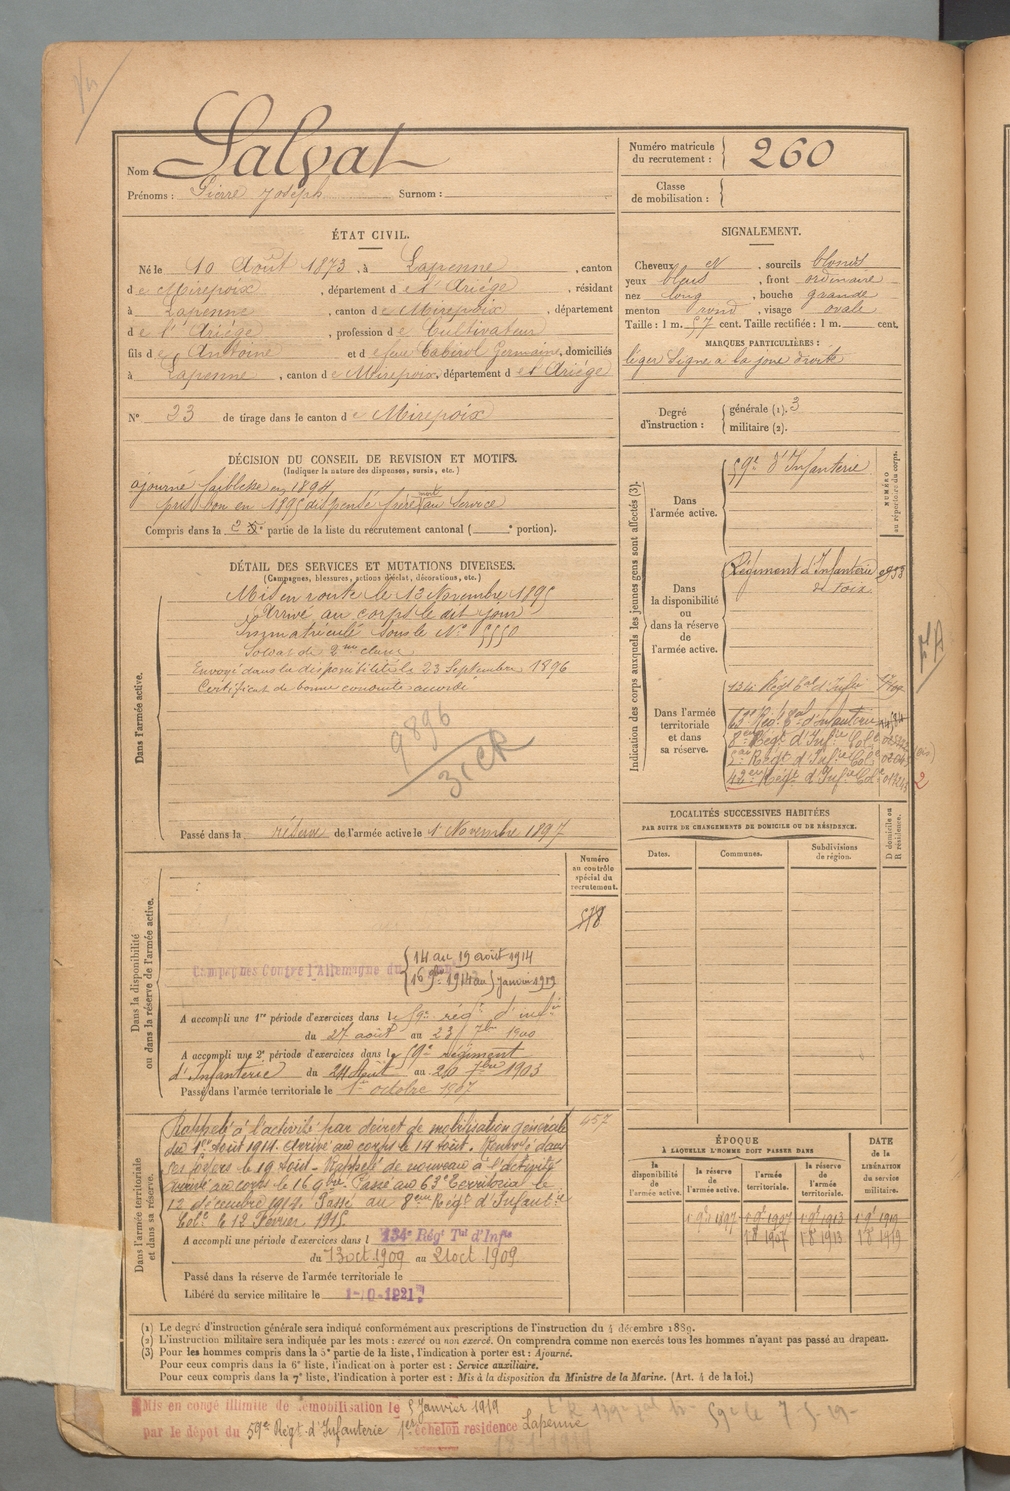 Nom : Salvat
Prénoms : Pierre Joseph Surnom :
Numéro matricule du recrutement : 260
Classe de mobilisation :
ÉTAT CIVIL.
Né le 10 Août 1873, à Lapenne, canton
de Mirepoix, département de l'Ariège, résidant
à Lapenne, canton de Mirepoix, département
de l'Ariège, profession de Cultivateur
fils de Antoine et de feue Cabirol Germaine, domiciliés
à Lapenne, canton de Mirepoix, département de l'Ariège
N° 23 de tirage dans le canton de Mirepoix
SIGNALEMENT.
Cheveux et, sourcils blonds
yeux bleus, front ordinaire
nez long, bouche grande
menton rond, visage ovale
Taille : 1 m. 57 cent. Taille rectifiée : 1 m. cent.
MARQUES PARTICULIÈRES :
léger signe à la joue droite
Degré d'instruction : générale (1). 3
militaire (2).
DÉCISION DU CONSEIL DE REVISION ET MOTIFS.
(Indiquer la nature des dispenses, sursis, etc.)
ajourné faiblesse en 1894
pris bon en 1895 dispensé frère mort au service
Compris dans la 2e partie de la liste du recrutement cantonal ( e portion).
DÉTAIL DES SERVICES ET MUTATIONS DIVERSES.
(Campagnes, blessures, actions d'éclat, décorations, etc.)
Dans l'armée active.
Mis en route le 13 Novembre 1895
Arrivé au corps le dit jour
Immatriculé sous le N° 5550
Soldat de 2me classe
Envoyé dans la disponibilité le 23 Septembre 1896
Certificat de bonne conduite accordé
9896
31 CR
Passé dans la réserve de l'armée active le 1er Novembre 1897
Indication des corps auxquels les jeunes gens sont affectés (3).
NUMÉRO au répertoire du corps.
Dans l'armée active.
59e d'Infanterie
Dans la disponibilité ou dans la réserve de l'armée active.
Régiment d'Infanterie
de Foix
Dans l'armée territoriale et dans sa réserve.
134e Régt tal d'Infie
63e Régt tal d'Infanterie
8eme Régt d'Infie Col.e
5eme Régt d'Infie Col.e
42eme Régt d'Infie Col.e
2
LOCALITÉS SUCCESSIVES HABITÉES
PAR SUITE DE CHANGEMENTS DE DOMICILE OU DE RÉSIDENCE.
Dates. Communes. Subdivisions de région. D domicile ou R résidence.
Dans la disponibilité ou dans la réserve de l'armée active.
Numéro au contrôle spécial du recrutement.
Campagnes Contre l'Allemagne du 14 au 19 août 1914
16 9bre 1914 au 5 janvier 1919
A accompli une 1re période d'exercices dans le 59e régt d'infie
du 27 août au 23 7bre 1900
A accompli une 2e période d'exercices dans le 59e régiment
d'Infanterie du 24 Août au 20 7bre 1903
Passé dans l'armée territoriale le 1er octobre 1907
Dans l'armée territoriale et dans sa réserve.
457
Rappelé à l'activité par décret de mobilisation générale
du 1er Août 1914. Arrivé au corps le 14 Août. Renvoyé dans
ses foyers le 19 Août. Rappelé de nouveau à l'activité
arrivé au corps le 16 9bre. Passé au 63e Territorial le
12 décembre 1914. Passé au 8eme Régt d'Infantie
Col.e le 12 Février 1915.
A accompli une période d'exercices dans l 134e Régt Tal d'Infie
du 13 oct 1909 au 21 oct 1909
Passé dans la réserve de l'armée territoriale le
Libéré du service militaire le
ÉPOQUE
À LAQUELLE L'HOMME DOIT PASSER DANS
la disponibilité de l'armée active. la réserve de l'armée active. l'armée territoriale. la réserve de l'armée territoriale. DATE de la LIBÉRATION du service militaire.
1 9bre 1897 1 9bre 1907 1 9bre 1913 1 9bre 1919
1 8 1907 1 8 1913 1 8 1919
(1) Le degré d'instruction générale sera indiqué conformément aux prescriptions de l'instruction du 4 décembre 1889.
(2) L'instruction militaire sera indiquée par les mots : exercé ou non exercé. On comprendra comme non exercés tous les hommes n'ayant pas passé au drapeau.
(3) Pour les hommes compris dans la 5e partie de la liste, l'indication à porter est : Ajourné.
Pour ceux compris dans la 6e liste, l'indication à porter est : Service auxiliaire.
Pour ceux compris dans la 7e liste, l'indication à porter est : Mis à la disposition du Ministre de la Marine. (Art. 4 de la loi.)
Mis en congé illimité de démobilisation le 5 Janvier 1919
par le dépôt du 59e Régt d'Infanterie 1er échelon résidence Lapenne